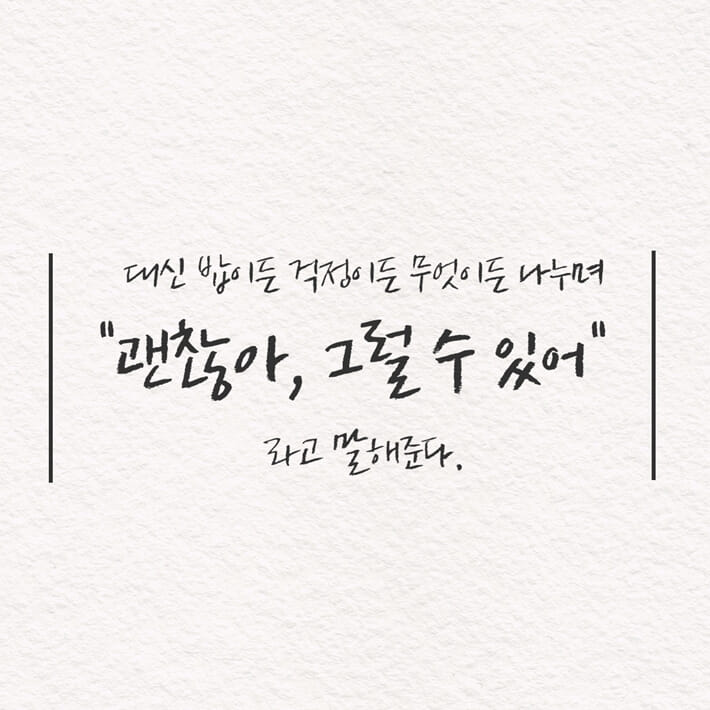 대신 밥이든 걱정이든 무엇이든 나누며
"괜찮아, 그럴 수 있어"
라고 말해준다.